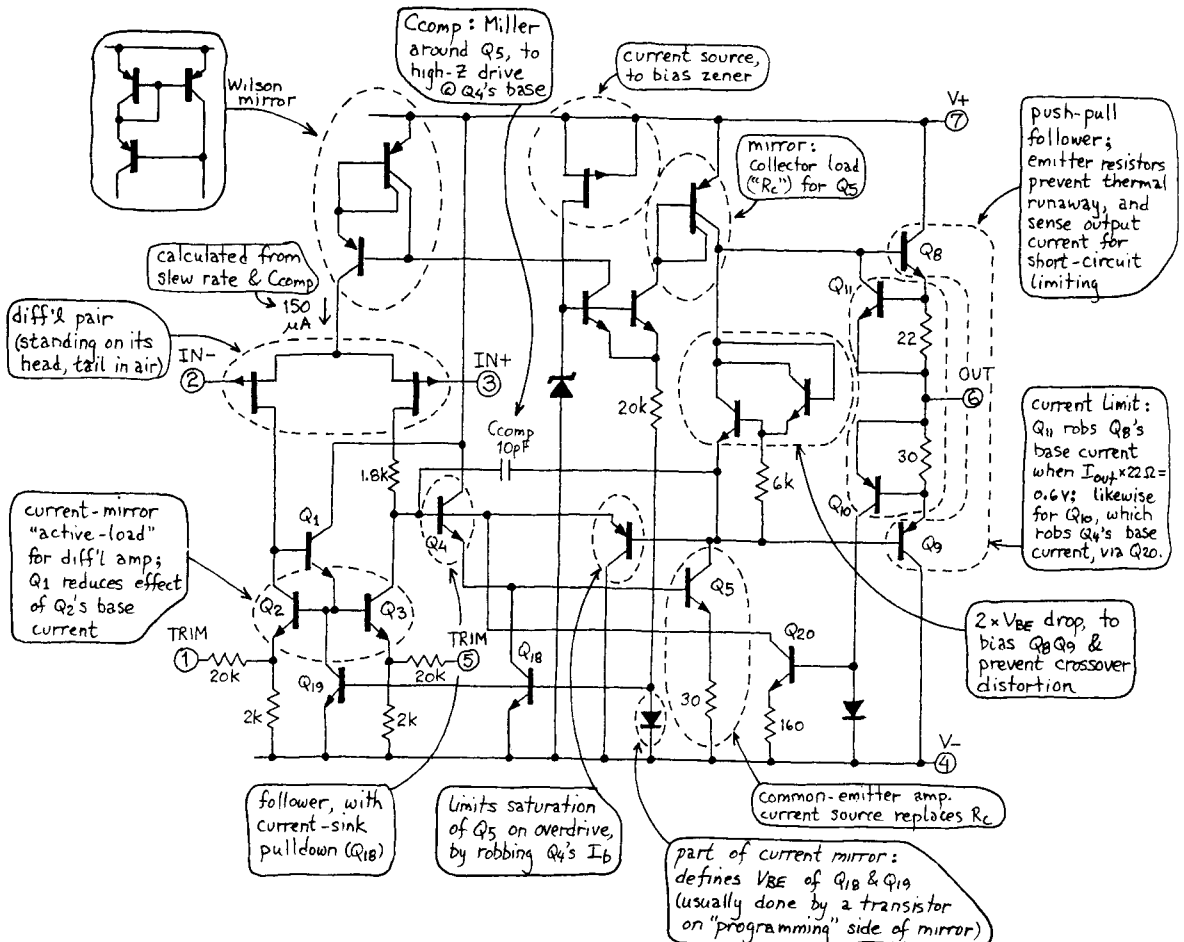 Ccomp: Miller
around Q5, to
high-Z drive
@ Q4's base
current source,
to bias zener
Wilson
mirror
V+
7
push-pull
follower;
emitter resistors
prevent thermal
runaway, and
sense output
current for
short-circuit
limiting
mirror:
collector load
("Rc") for Q5
calculated from
slew rate & Ccomp
150
μA
Q8
Q11
22
diff'l pair
(standing on its
head, tail in air)
IN-
2
IN+
3
OUT
6
20k
Ccomp
10pF
1.8k
6k
30
Q10
Q9
current limit:
Q11 robs Q8's
base current
when Iout×22Ω=
0.6V; likewise
for Q10, which
robs Q4's base
current, via Q20.
current-mirror
"active-load"
for diff'l amp;
Q1 reduces effect
of Q2's base
current
Q1
Q4
Q2
Q3
Q5
TRIM
1
20k
TRIM
5
20k
Q18
Q19
Q20
2k
2k
30
160
2×VBE drop, to
bias Q8Q9 &
prevent crossover
distortion
V-
4
follower, with
current-sink
pulldown (Q18)
limits saturation
of Q5 on overdrive,
by robbing Q4's Ib
common-emitter amp.
current source replaces Rc
part of current mirror:
defines VBE of Q18 & Q19
(usually done by a transistor
on "programming" side of mirror)